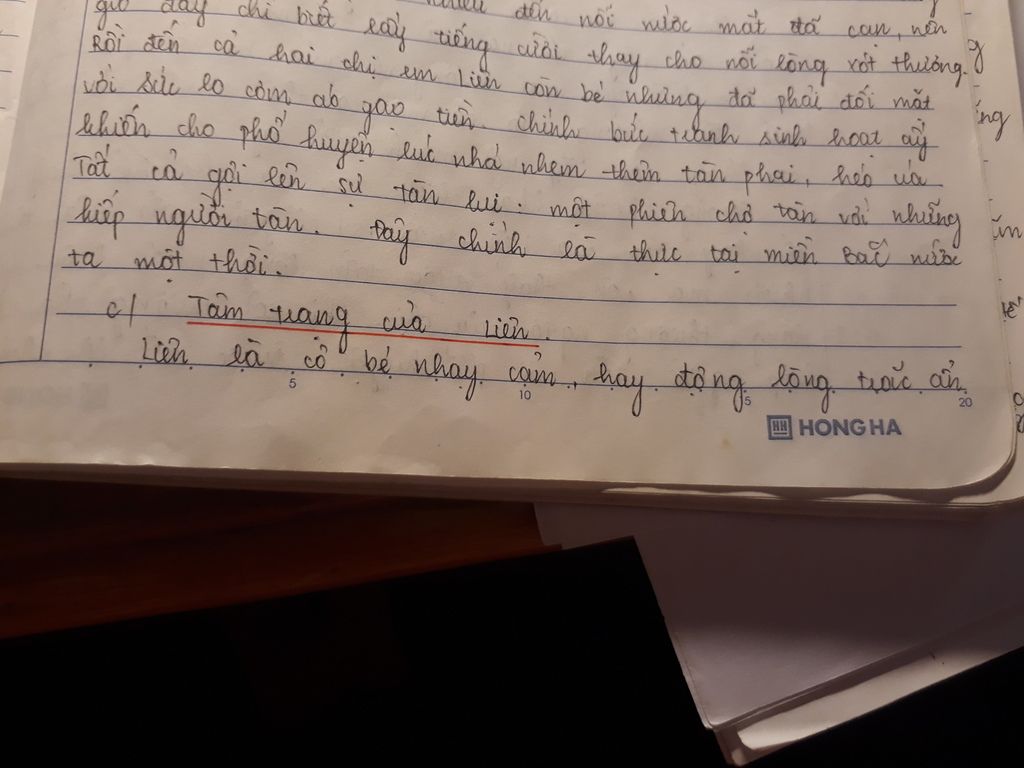 giờ đây chỉ biết lấy tiếng cười thay cho nỗi lòng xót thương.
đến nỗi nước mắt đã cạn, nên
Rồi đến cả hai chị em Liên còn bé nhưng đã phải đối mặt
với sức lo cơm áo gạo tiền. chính bức tranh sinh hoạt ấy
khiến cho phố huyện lúc nhá nhem thêm tàn phai, héo úa
Tất cả gợi lên sự tàn lụi: một phiên chợ tàn với những
kiếp người tàn. Đây chính là thực tại miền Bắc nước
ta một thời.
c/ Tâm trạng của Liên.
Liên là cô bé nhạy cảm, hay động lòng trắc ẩn
5 10 5 20
HH HONG HA